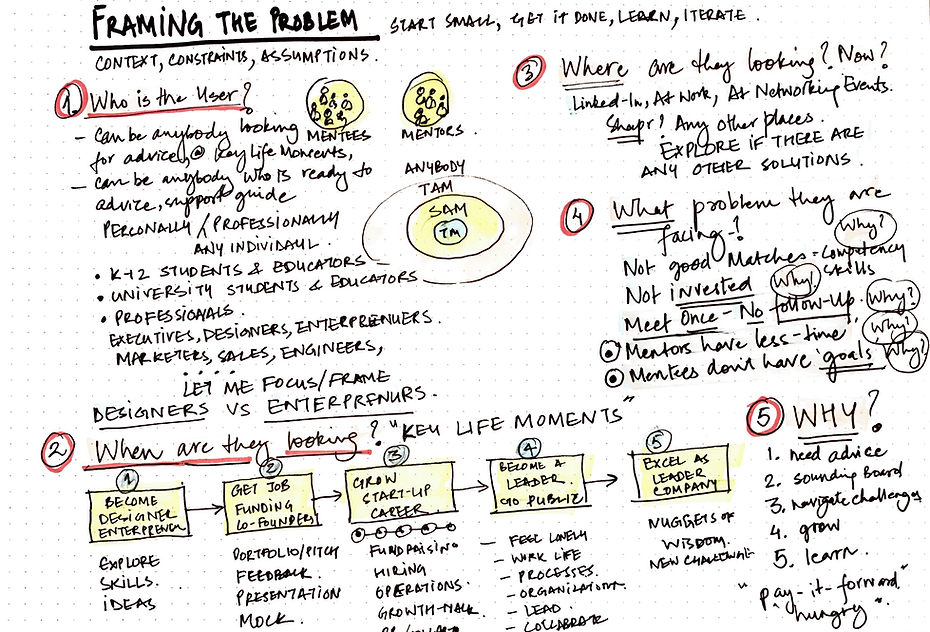 FRAMING THE PROBLEM
START SMALL, GET IT DONE, LEARN, ITERATE.
CONTEXT, CONSTRAINTS, ASSUMPTIONS.
1. Who is the User?
- Can be anybody looking
for advice, @ Key Life Moments,
- Can be anybody who is ready to
advice, support guide
PERSONALLY / PROFESSIONALLY
ANY INDIVIDAUL.
• K-12 STUDENTS & EDUCATORS
• UNIVERSITY STUDENTS & EDUCATORS
• PROFESSIONALS.
EXECUTIVES, DESIGNERS, ENTERPRENUERS.
MARKETERS, SALES, ENGINEERS,
.....
LET ME FOCUS/FRAME
DESIGNERS VS ENTERPRENURS.
MENTEES
MENTORS.
ANYBODY
TAM
SAM
TM
2 When are they looking? "KEY LIFE MOMENTS"
1
BECOME
DESIGNER
ENTERPRENUR
EXPLORE
SKILLS.
IDEAS
2
GET JOB
FUNDING
CO-FOUNDERS
PORTFOLIO/PITCH
FEEDBACK.
PRESENTATION
MOCK.
3
GROW
START-UP
CAREER.
FUNDRAISING
HIRING
OPERATIONS.
GROWTH-HACK
4
BECOME A
LEADER.
GO PUBLIC
- FEEL LONELY
- WORK LIFE
- PROCESSES.
- ORGANIZATION
- LEAD.
- COLLABRATE
5
EXCEL AS
LEADER
COMPANY
NUGGETS OF
WISDOM.
NEW CHALLENGE
3 Where are they looking? Now?
Linked-In, At Work, At Networking Events.
Shapr? Any other places.
EXPLORE IF THERE ARE
ANY OTHER SOLUTIONS.
4 What problem they are
facing-?
Why?
Not good Matches - competency
skills
Not invested Why?
Meet Once - No follow-up. Why?
Mentors have less-time. Why?
Mentees don't have 'goals' Why?
5 WHY?
1. need advice
2. sounding board
3. navigate challenges
4. grow
5. learn.
"pay-it-forward"
hungry".